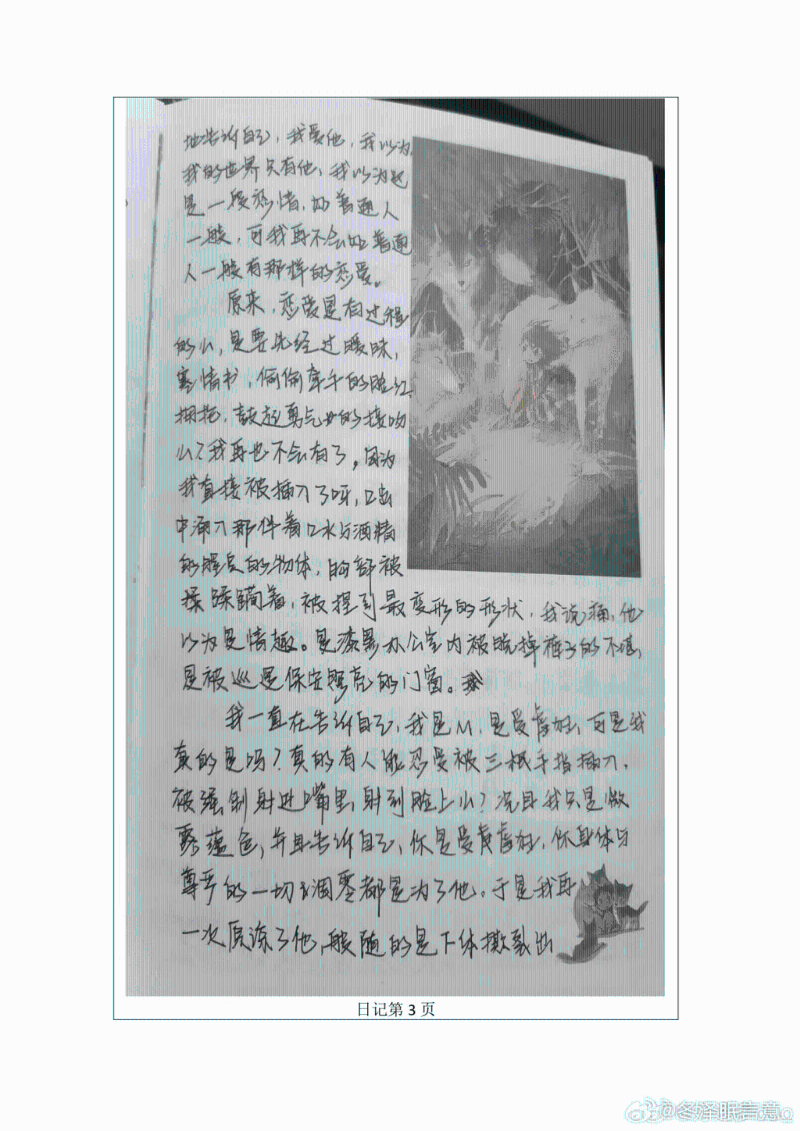 地告诉自己，我爱他，我以为
我的世界只有他，我以为这
是一段恋情，如普通人
一般，可我再不会如普通
人一般有那样的恋爱。
原来，恋爱是有过程
的么，是要先经过暧昧，
写情书，偷偷牵手的脸红
拥抱，鼓起勇气的接吻
么？我再也不会有了。因为
我直接被插入了呀，口
中涌入那伴着口水与酒精
的腥臭的物体，胸部被
揉蹂躏着，被捏到最变形的形状，我说痛，他
以为是情趣。是漆黑办公室内被脱掉裤子的不堪，
是被巡逻保安照亮的门窗。
我一直在告诉自己，我是M，是受虐狂，可是我
真的是吗？真的有人能忍受被三根手指插入，
被强制射进嘴里，射到脸上么？况且我只是做
并且告诉自己，你是受虐狂，你身体与
尊严的一切凋零都是为了他，于是我再
一次原谅了他，伴随的是下体撕裂出
日记第 3 页